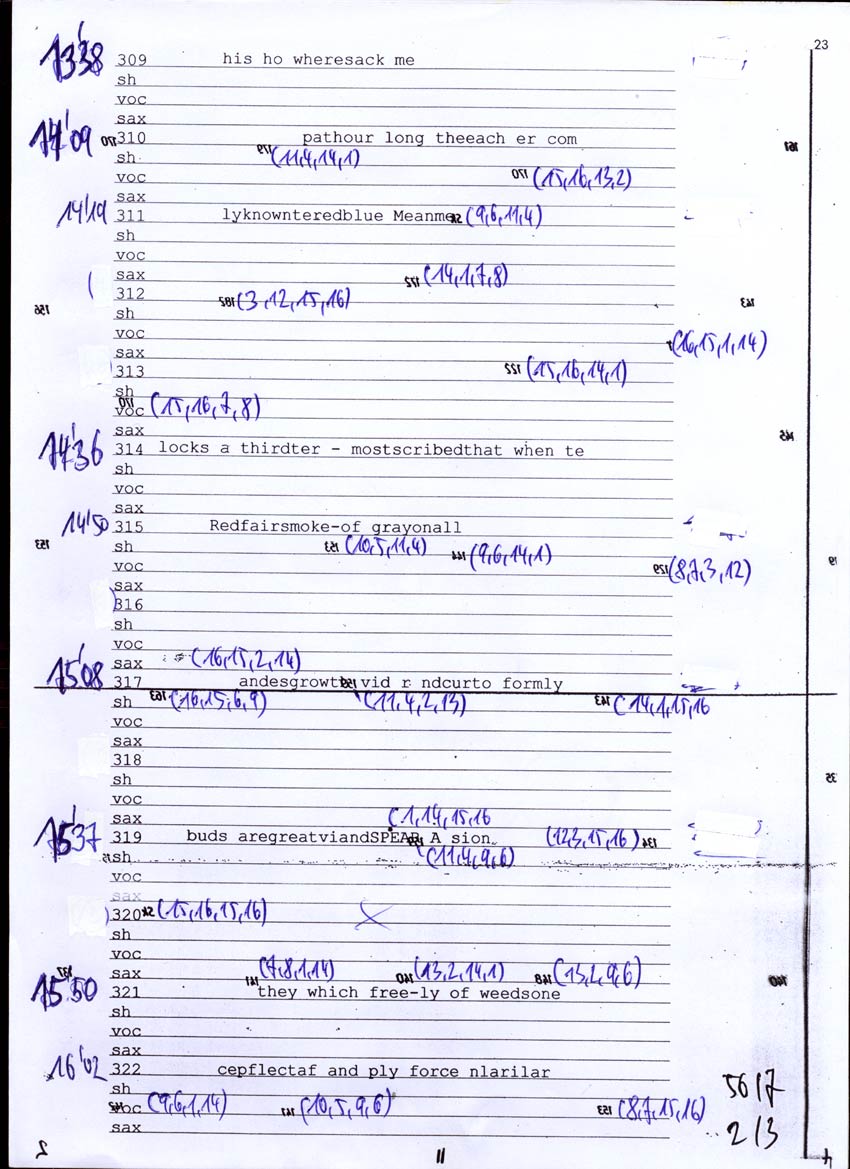 23
13'38 309 his ho wheresack me
sh
voc
sax
14'09 310 pathour long theeach er com
sh (11,4,14,1)
voc (15,16,13,2)
sax
14'19 311 lyknownteredblue Meanme (9,6,11,4)
sh
voc
sax (14,1,7,8)
312 (3,12,15,16)
sh
voc (16,15,1,14)
sax
313 (15,16,14,1)
sh
voc (15,16,7,8)
sax
14'36 314 locks a thirdter - mostscribedthat when te
sh
voc
sax
14'50 315 Redfairsmoke-of grayonall
sh (10,5,11,4) (9,6,14,1)
voc (8,7,3,12)
sax
316
sh
voc
sax (16,15,2,14)
15'08 317 andesgrowth vid r ndcurto formly
sh (16,15,6,9) (11,4,2,13) (14,1,15,16
voc
sax
318
sh
voc
sax (1,14,15,16
15'37 319 buds aregreatviandSPEAR A sion (12,3,15,16)
sh (11,4,9,6)
voc
sax
320 (15,16,15,16)
sh
voc
sax (7,8,1,14) (13,2,14,1) (13,2,9,6)
15'50 321 they which free-ly of weedsone
sh
voc
sax
16'02 322 cepflectaf and ply force nlarilar
sh
voc (9,6,1,14) (10,5,9,6) (8,7,15,16)
sax
56/7
2/3
2 11 4